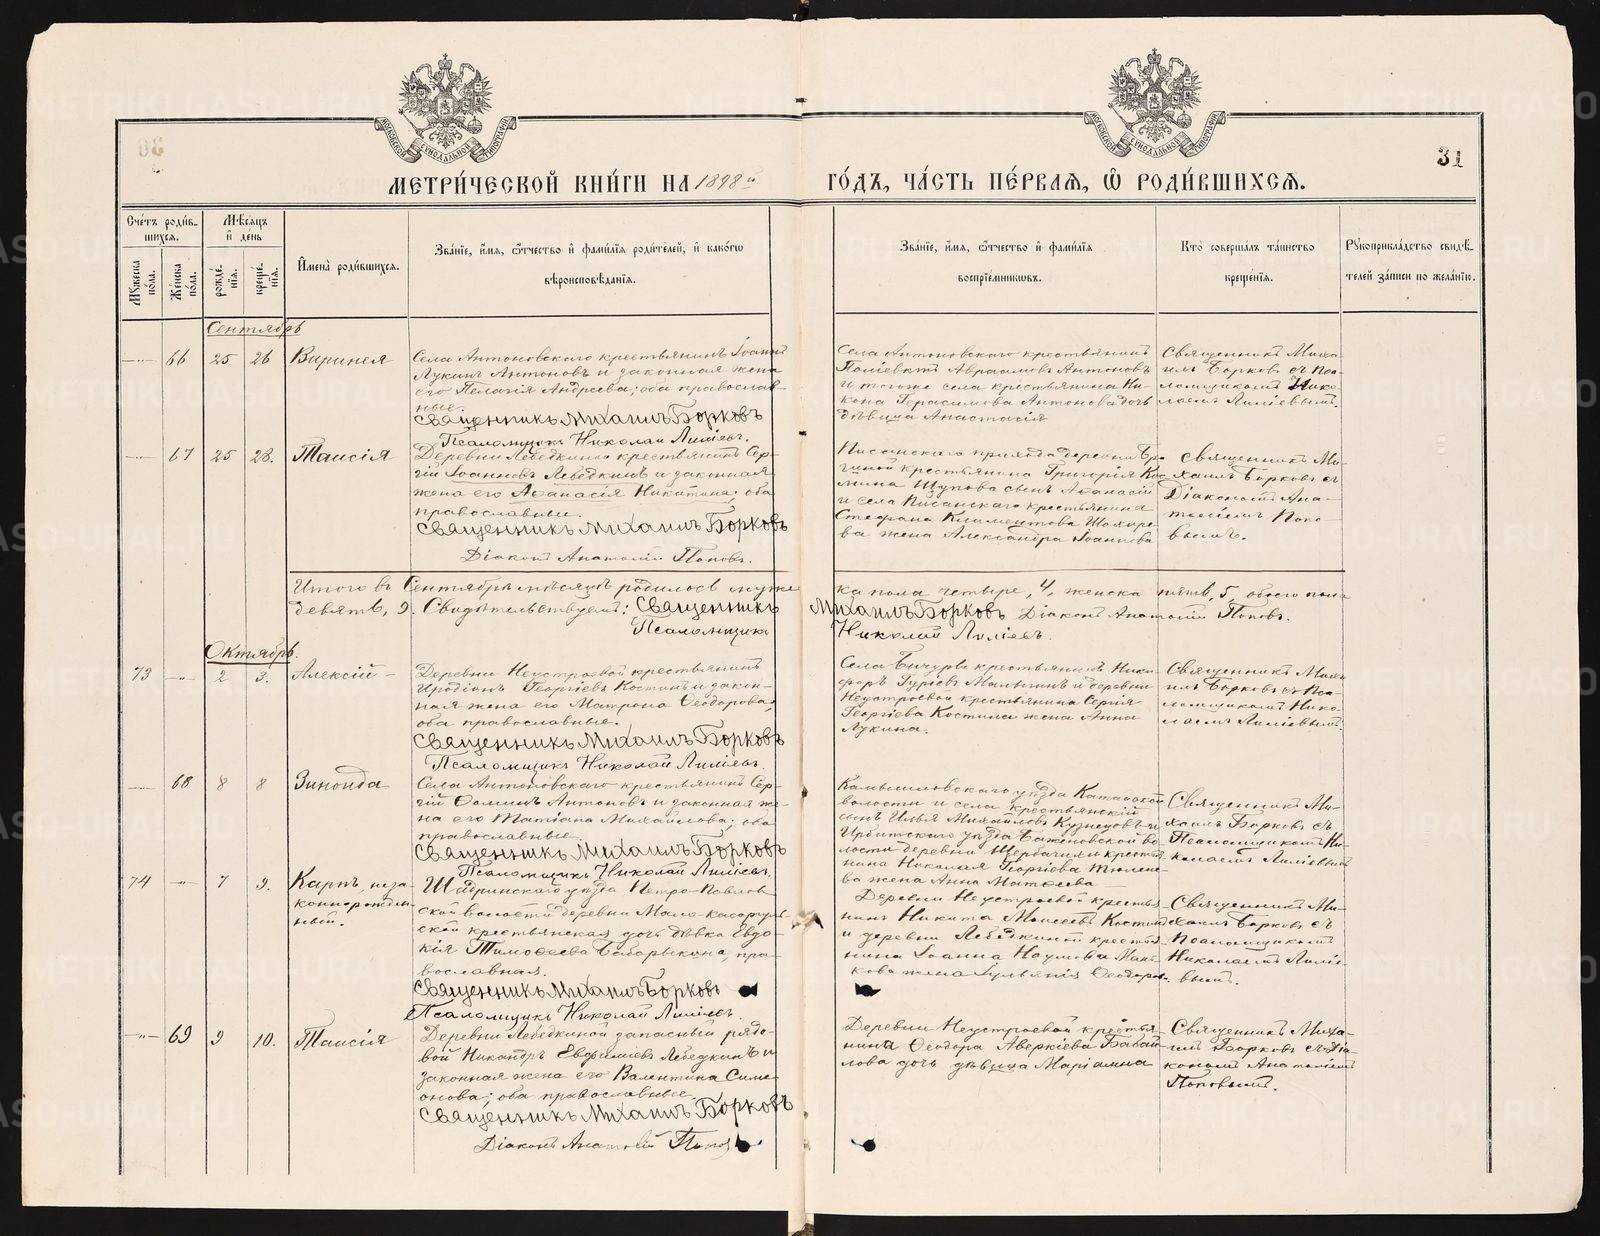 МОСКОВСКОЙ СѴНОДАЛЬНОЙ ТИПОГРАФІИ
МОСКОВСКОЙ СѴНОДАЛЬНОЙ ТИПОГРАФІИ
31
МЕТРИ́ЧЕСКОЙ КНИ́ГИ НА 1898й ГО́ДЪ, ЧА́СТЬ ПЕ́РВАЯ, Ѽ РОДИ́ВШИХСЯ.
Сче́тъ роди́в-
шихся.
Мꙋ́жеска по́ла.
Же́нска по́ла.
Мѣ́сяцъ
и́ де́нь
рожде́нія.
креще́нія.
И҆мена̀ роди́вшихся.
Зва́ніе, и҆́мя, ѻ҆́тчество и҆ фами́лія роди́телей, и҆ како́гѡ
вѣроисповѣ́данія.
Зва́ніе, и҆́мя, ѻ҆́тчество и҆ фами́лія
воспріе́мникѡвъ.
Кто̀ соверша́лъ та́инство
креще́нія.
Рꙋкоприкла́дство свидѣ́-
телей за́писи по жела́нію.
Сентябрь
66 25 26 Виринея
Села Антоновскаго крестьянинъ Іоаннъ
Лукинъ Антоновъ и законная жена
его Пелагія Андреева; оба православ-
ные.
Священникъ Михаилъ Борковъ
Псаломщикъ Николай Лиліевъ.
Села Антоновскаго крестьянинъ
Поліевктъ Авраамовъ Антоновъ
и тогоже села крестьянина Ни-
кона Герасимова Антонова дочь
дѣвица Анастасія
Священникъ Миха-
илъ Борковъ съ Пса-
ломщикомъ Нико-
лаемъ Лиліевымъ.
67 25 28. Таисія
Деревни Лебедкиной крестьянинъ Сер-
гій Іоанновъ Лебедкинъ и законная
жена его Аѳанасія Никитина; оба
православные.
Священникъ Михаилъ Борковъ
Діаконъ Анатолій Поповъ.
Писанскаго прихода деревни
крестьянина Григорія
сынъ Аѳанасій
и села Писанскаго крестьянина
Стефана Климентова
ва жена Александра Іоаннова
Священникъ Ми-
хаилъ Борковъ съ
Діакономъ Ана-
толіемъ Попо-
вымъ.
Итого въ Сентябрѣ мѣсяцѣ родилось муже
ска пола четыре, 4, женска пять, 5, обоего пола
девять, 9. Свидѣтельствуемъ: Священникъ Михаилъ Борковъ Діаконъ Анатолій Поповъ.
Псаломщикъ Николай Лиліевъ.
Октябрь.
73 2 3. Алексій
Деревни Неустроевой крестьянинъ
Иродіонъ Георгіевъ Костинъ и закон-
ная жена его Матрона Ѳеодорова,
оба православные.
Священникъ Михаилъ Борковъ
Псаломщикъ Николай Лиліевъ.
Села Бичурв крестьянинъ Ники-
форъ Гуріевъ Малыгинъ и деревни
Неустроевой крестьянина Сергія
Георгіева Костина жена Анна
Лукина.
Священникъ Миха-
илъ Борковъ съ Пса-
ломщикомъ Нико-
лаемъ Лиліевымъ
68 8 8 Зиноида
Села Антоновскаго крестьянинъ Сер-
гій Ѳоминъ Антоновъ и законная же-
на его Татіана Михайлова; оба
православные
Священникъ Михаилъ Борковъ
Псаломщикъ Николай Лиліевъ.
Камышловскаго уѣзда Катайской
волости и села крестьянскій
сынъ Илья Михайловъ Кузнецовъ и
Ирбитскаго уѣзда Баженовской во-
лости деревни крестья-
нина Николая Георгіева
ва жена Анна Матѳеева
Священникъ Ми-
хаилъ Борковъ съ
Псаломщикомъ Ни-
колаемъ Лиліевымъ
74 7 9. Карпъ, неза-
коннорожден-
ный.
Шадринскаго уѣзда Петро-Павлов-
ской волости деревни Мало-Касаргуль-
ской крестьянская дочь дѣвка Евдо-
кія Тимоѳеева Бабарыкина, пра-
вославная.
Священникъ Михаилъ Борковъ
Псаломщикъ Николай Лиліевъ.
Деревни Неустроевой крестья-
нинъ Никита Моисеевъ Костинъ
и деревни Лебедкиной крестья-
нина Іоанна Наумова
кова жена Іуліанія Ѳеодоров.
Священникъ Ми-
хаилъ Борковъ съ
Псаломщикомъ
Николаемъ Лиліе-
вымъ.
69 9 10. Таисія
Деревни Лебедкиной запасный рядо-
вой Никандръ Евфиміевъ Лебедкинъ и
законная жена его Валентина Симе-
онова; оба православные.
Священникъ Михаилъ Борковъ
Діаконъ Анатолій Поповъ
Деревни Неустроевой крестья-
нина Ѳеодора Аверкіева Бабай-
лова дочь дѣвица Маріамна
Священникъ Миха-
илъ Борковъ съ Діа-
кономъ Анатоліемъ
Поповымъ.